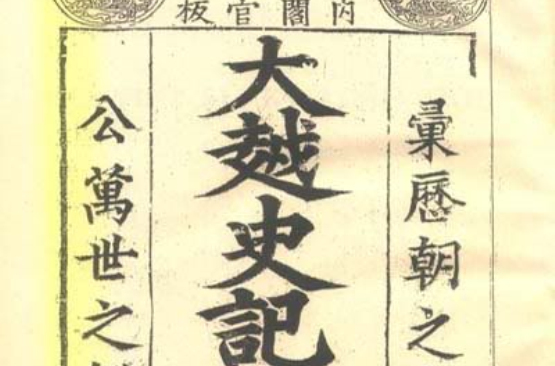 內閣官板
彙歷朝之
大越史記
公萬世之